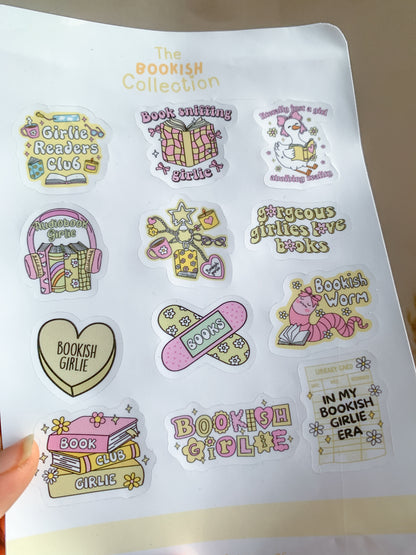 The
BOOKISH
Collection
Girlie
Readers
Club
Book sniffing
girlie
literally just a girl
Audiobook
Girlie
gorgeous
girlies love
books
BOOKISH
GIRLIE
BOOKS
Bookish
Worm
BOOK
CLUB
GIRLIE
BOOKISH
GIRLIE
LIBRARY CARD
IN MY
BOOKISH
GIRLIE
ERA